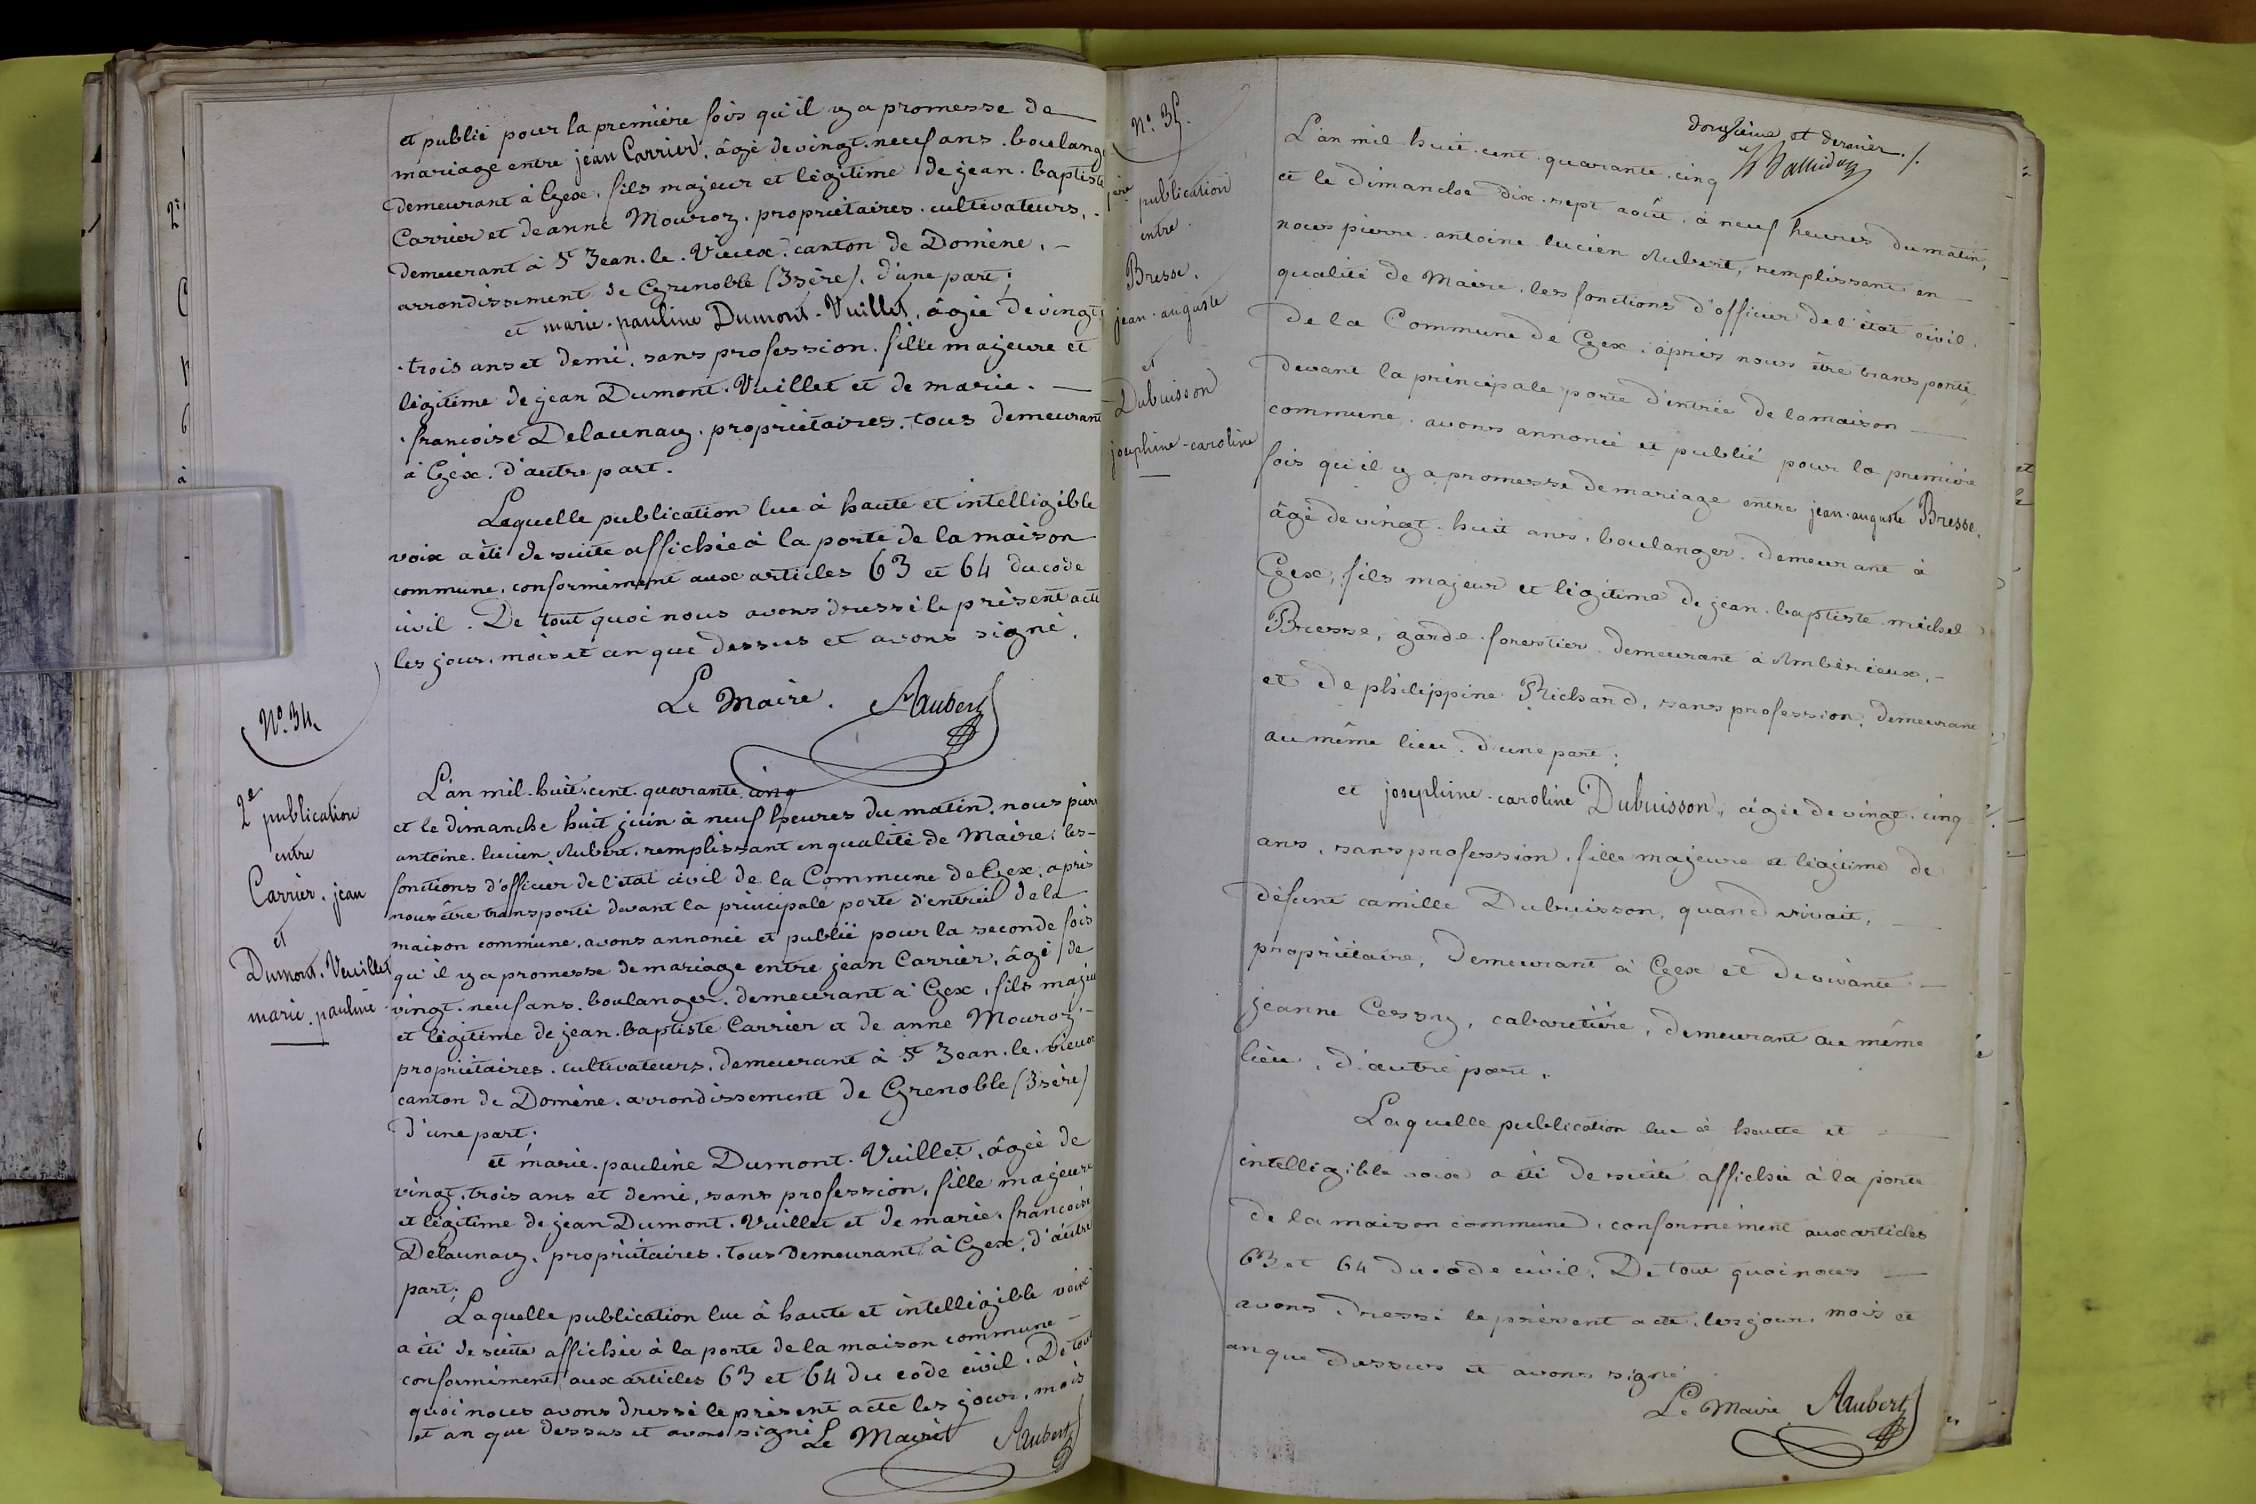 et publié pour la première fois qu'il y a promesse de
mariage entre jean Carrier, âgé de vingt-neuf ans, boulang
demeurant à Gex, fils majeur et légitime de jean-baptiste
Carrier et de anne Mouroz, propriétaires-cultivateurs,
demeurant à St Jean-le-Vieux, canton de Domène,
arrondissement de Grenoble (Isère), d'une part;
et marie-pauline Dumont-Vuillet, âgée de vingt
trois ans et demi, sans profession, fille majeure et
légitime de jean Dumont-Vuillet et de marie-
françoise Delaunay, propriétaires, tous demeurant
à Gex, d'autre part.
Laquelle publication lue à haute et intelligible
voix a été de suite affichée à la porte de la maison
commune, conformément aux articles 63 et 64 du code
civil. De tout quoi nous avons dressé le présent acte
les jour, mois et an que dessus et avons signé.
Le Maire. Aubert
N° 34.
2e publication
entre
Carrier, jean
et
Dumont-Vuillet
marie-pauline
L'an mil-huit-cent-quarante-cinq
et le dimanche huit juin à neuf heures du matin, nous pierre
antoine-lucien Aubert, remplissant en qualité de Maire, les
fonctions d'officier de l'état civil de la Commune de Gex, après
nous être transporté devant la principale porte d'entrée de la
maison commune, avons annoncé et publié pour la seconde fois
qu'il y a promesse de mariage entre jean Carrier, âgé de
vingt-neuf ans, boulanger, demeurant à Gex, fils majeur
et légitime de jean-baptiste Carrier et de anne Mouroz,
propriétaires-cultivateurs, demeurant à St Jean-le-vieux
canton de Domène, arrondissement de Grenoble (Isère)
d'une part;
et marie-pauline Dumont-Vuillet, âgée de
vingt-trois ans et demi, sans profession, fille majeure
et légitime de jean Dumont-Vuillet et de marie-françoise
Delaunay, propriétaires, tous demeurant à Gex, d'autre
part;
Laquelle publication lue à haute et intelligible voix
a été de suite affichée à la porte de la maison commune
conformément aux articles 63 et 64 du code civil. De tout
quoi nous avons dressé le présent acte les jour, mois
et an que dessus et avons signé
Le Maire Aubert
N° 35.
1ère publication
entre
Bresse,
jean-auguste
et
Dubuisson
josephine-caroline
douzième et dernier
L'an mil-huit-cent-quarante-cinq
et le dimanche dix-sept août, à neuf heures du matin,
nous pierre-antoine-lucien Aubert, remplissant en
qualité de Maire, les fonctions d'officier de l'état civil
de la Commune de Gex, après nous être transporté
devant la principale porte d'entrée de la maison
commune, avons annoncé et publié pour la première
fois qu'il y a promesse de mariage entre jean-auguste Bresse,
âgé de vingt-huit ans, boulanger, demeurant à
Gex, fils majeur et légitime de jean-baptiste-michel
Bresse, garde-forestier, demeurant à Ambérieux,
et de philippine Richard, sans profession, demeurant
au même lieu, d'une part;
et josephine-caroline Dubuisson, âgée de vingt-cinq
ans, sans profession, fille majeure et légitime de
défunt camille Dubuisson, quand vivait,
propriétaire, demeurant à Gex et de vivante
jeanne Cessy, cabaretière, demeurant au même
lieu, d'autre part.
Laquelle publication lue à hautte et
intelligible voix a été de suite affichée à la porte
de la maison commune, conformément aux articles
63 et 64 du code civil. De tout quoi nous
avons dressé le présent acte, les jour, mois et
an que dessus et avons signé.
Le Maire Aubert